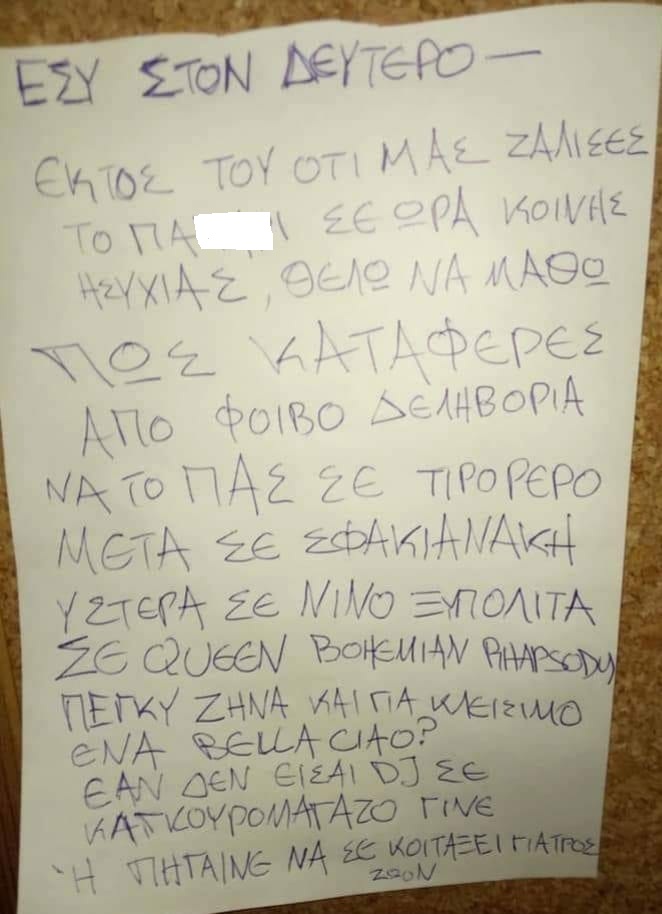 ΕΣΥ ΣΤΟΝ ΔΕΥΤΕΡΟ —
ΕΚΤΟΣ ΤΟΥ ΟΤΙ ΜΑΣ ΖΑΛΙΣΕΣ
ΤΟ ΣΕ ΩΡΑ ΚΟΙΝΗΣ
ΗΣΥΧΙΑΣ, ΘΕΛΩ ΝΑ ΜΑΘΩ
ΠΩΣ ΚΑΤΑΦΕΡΕΣ
ΑΠΟ ΦΟΙΒΟ ΔΕΛΗΒΟΡΙΑ
ΝΑ ΤΟ ΠΑΣ ΣΕ ΤΙΡΟΡΕΡΟ
ΜΕΤΑ ΣΕ ΣΦΑΚΙΑΝΑΚΗ
ΥΣΤΕΡΑ ΣΕ ΝΙΝΟ ΞΥΠΟΛΙΤΑ
ΣΕ QUEEN BOHEMIAN RHAPSODY
ΠΕΓΚΥ ΖΗΝΑ ΚΑΙ ΓΙΑ ΚΛΕΙΣΙΜΟ
ΕΝΑ BELLA CIAO?
ΕΑΝ ΔΕΝ ΕΙΣΑΙ DJ ΣΕ
ΚΑΓΚΟΥΡΟΜΑΓΑΖΟ ΓΙΝΕ
Ή ΠΗΓΑΙΝΕ ΝΑ ΣΕ ΚΟΙΤΑΞΕΙ ΓΙΑΤΡΟΣ
ΖΩΩΝ